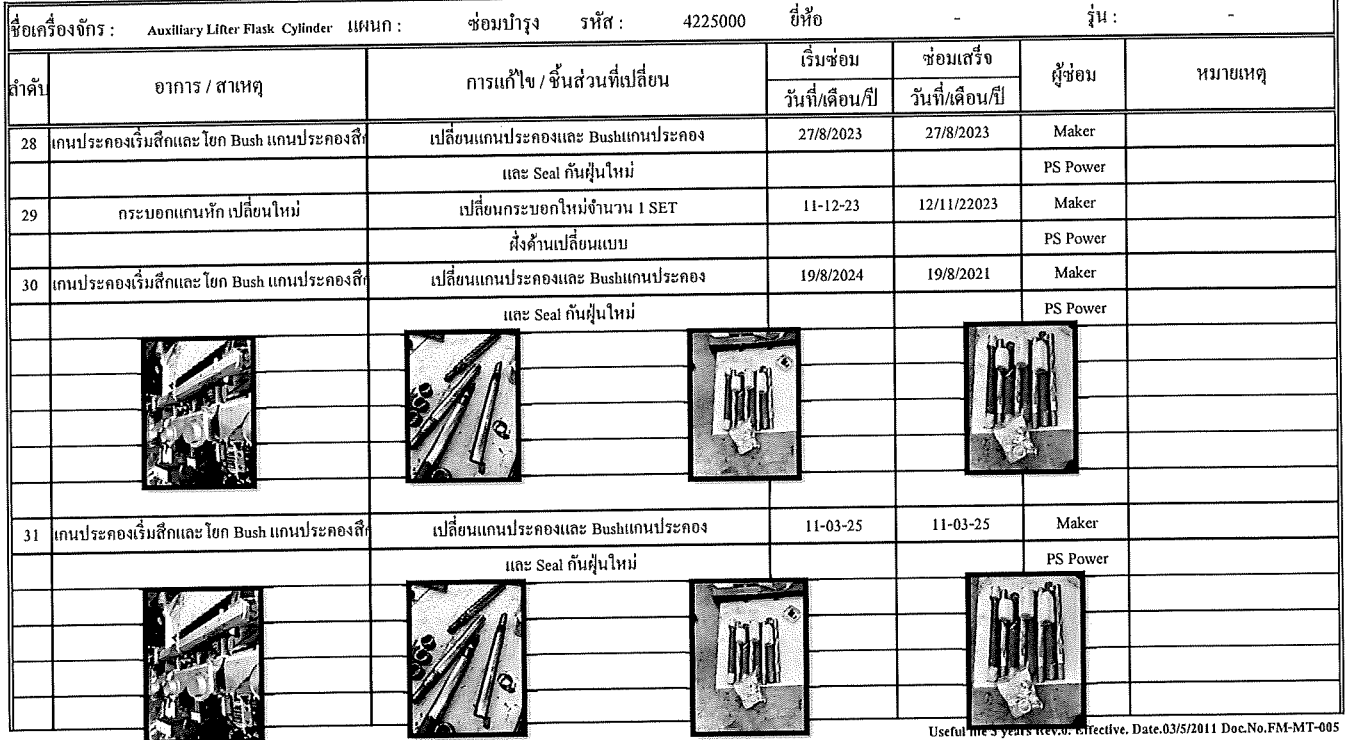 ชื่อเครื่องจักร : Auxiliary Lifter Flask Cylinder แผนก : ซ่อมบำรุง รหัส : 4225000 ยี่ห้อ - รุ่น : -
ลำดับ อาการ / สาเหตุ การแก้ไข / ชิ้นส่วนที่เปลี่ยน เริ่มซ่อม ซ่อมเสร็จ ผู้ซ่อม หมายเหตุ
วันที่/เดือน/ปี วันที่/เดือน/ปี
28 แกนประคองเริ่มสึกและโยก Bush แกนประคองสึก เปลี่ยนแกนประคองและ Bushแกนประคอง 27/8/2023 27/8/2023 Maker
และ Seal กันฝุ่นใหม่ PS Power
29 กระบอกแกนหัก เปลี่ยนใหม่ เปลี่ยนกระบอกใหม่จำนวน 1 SET 11-12-23 12/11/22023 Maker
ฝั่งด้านเปลี่ยนแบบ PS Power
30 แกนประคองเริ่มสึกและโยก Bush แกนประคองสึก เปลี่ยนแกนประคองและ Bushแกนประคอง 19/8/2024 19/8/2021 Maker
และ Seal กันฝุ่นใหม่ PS Power
31 แกนประคองเริ่มสึกและโยก Bush แกนประคองสึก เปลี่ยนแกนประคองและ Bushแกนประคอง 11-03-25 11-03-25 Maker
และ Seal กันฝุ่นใหม่ PS Power
Useful life 3 years Rev.0. Effective. Date.03/5/2011 Doc.No.FM-MT-005